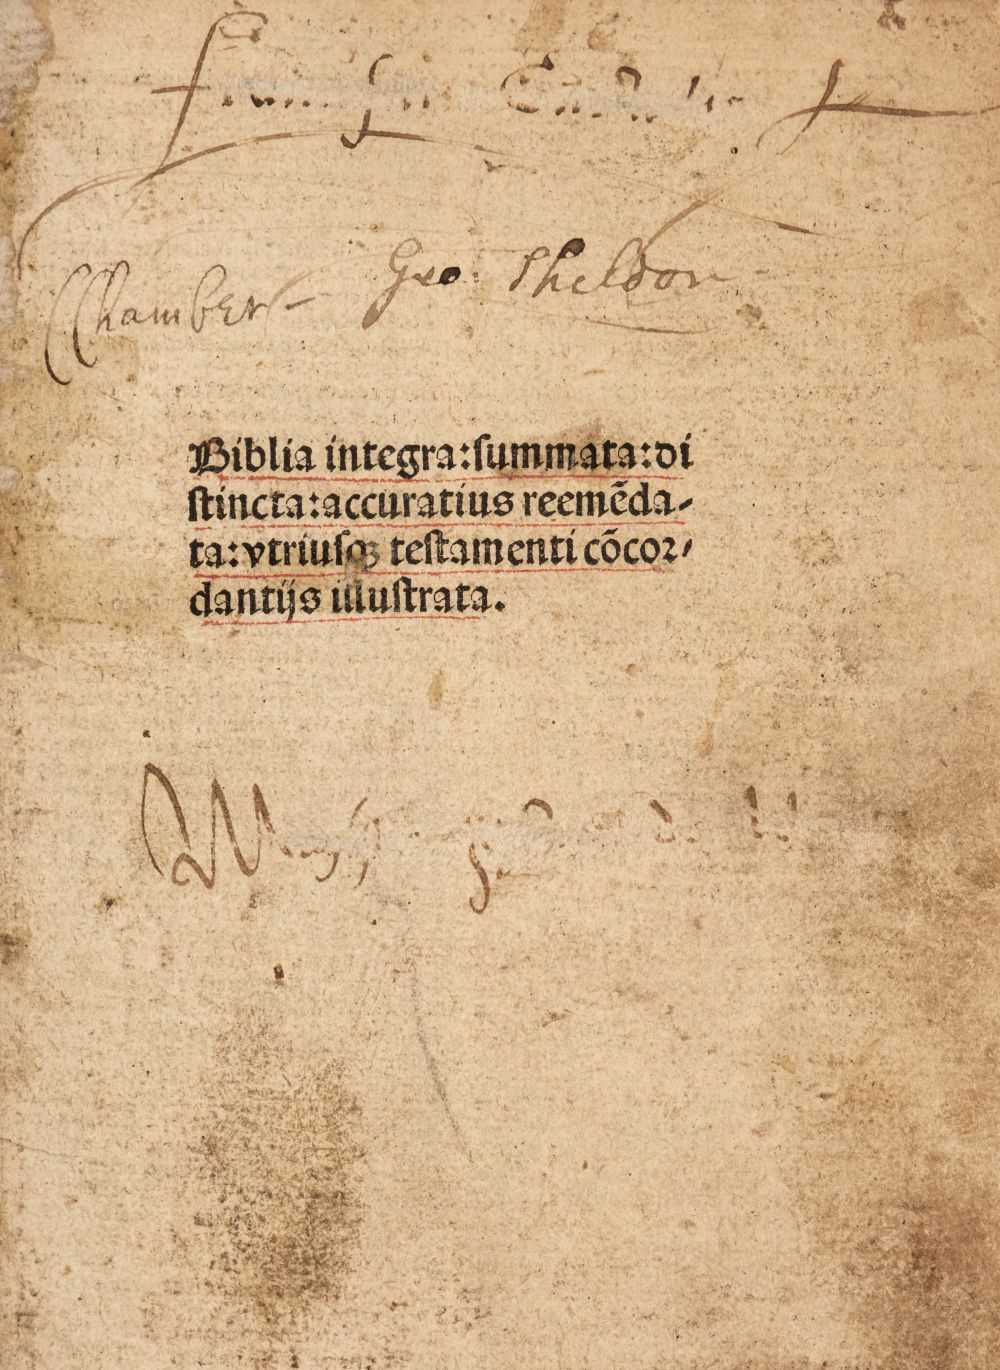 Chambers
Geo: Sheldon
Biblia integra:ſummata:di
ſtincta:accuratius reemēda-
ta:vtriuſqꝫ teſtamenti cōcor-
dantijs illuſtrata.